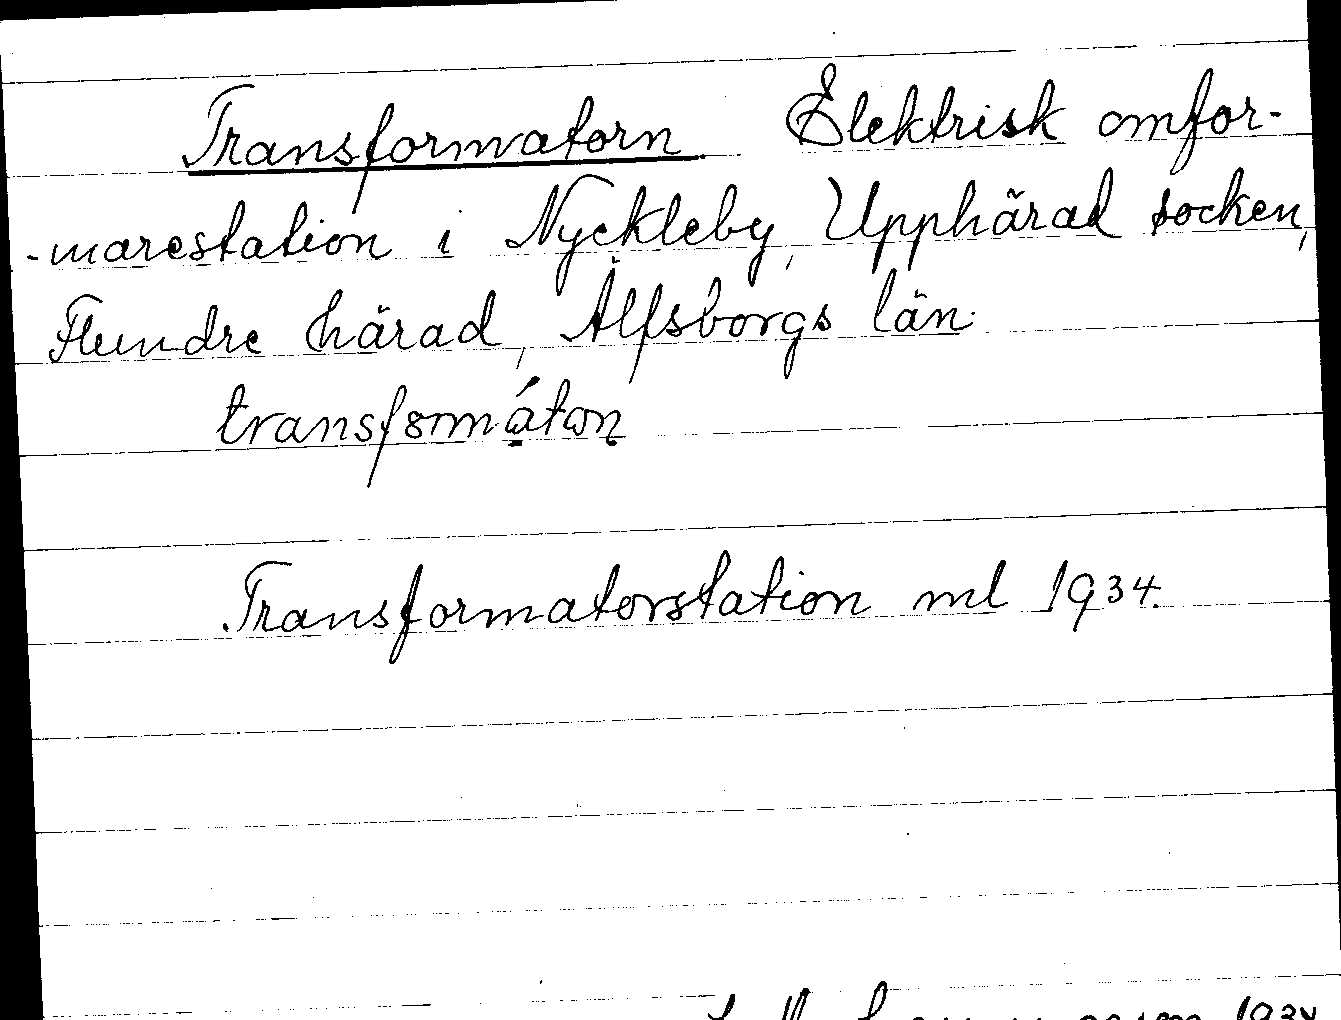 Transformatorn Elektrisk omfor-
-marestation i Nyckleby, Upphärad socken,
Flundre härad, Älfsborgs län.
transformátọn
Transformatorstation ml 1934.
1934